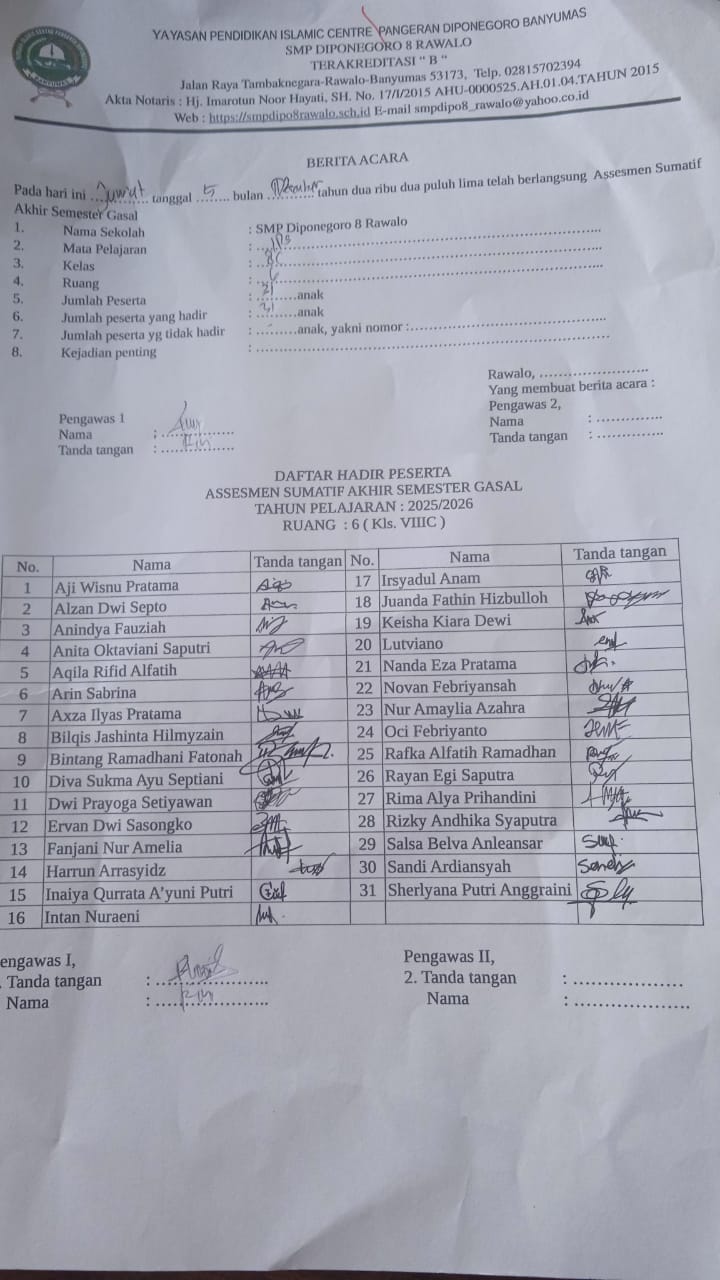 YAYASAN PENDIDIKAN ISLAMIC CENTRE PANGERAN DIPONEGORO BANYUMAS
SMP DIPONEGORO 8 RAWALO
TERAKREDITASI " B "
Jalan Raya Tambaknegara-Rawalo-Banyumas 53173, Telp. 02815702394
Akta Notaris : Hj. Imarotun Noor Hayati, SH. No. 17/I/2015 AHU-0000525.AH.01.04.TAHUN 2015
Web : https://smpdipo8rawalo.sch.id E-mail smpdipo8_rawalo@yahoo.co.id
BERITA ACARA
Pada hari ini Jum'at tanggal 5 bulan Desember tahun dua ribu dua puluh lima telah berlangsung Assesmen Sumatif
Akhir Semester Gasal
1. Nama Sekolah : SMP Diponegoro 8 Rawalo
2. Mata Pelajaran :
3. Kelas :
4. Ruang :
5. Jumlah Peserta : 31 anak
6. Jumlah peserta yang hadir : 31 anak
7. Jumlah peserta yg tidak hadir : ......... anak, yakni nomor :
8. Kejadian penting :
Rawalo,
Yang membuat berita acara :
Pengawas 1
Pengawas 2,
Nama :
Nama :
Tanda tangan :
Tanda tangan :
DAFTAR HADIR PESERTA
ASSESMEN SUMATIF AKHIR SEMESTER GASAL
TAHUN PELAJARAN : 2025/2026
RUANG : 6 ( Kls. VIIIC )
No. Nama Tanda tangan No. Nama Tanda tangan
1 Aji Wisnu Pratama 17 Irsyadul Anam
2 Alzan Dwi Septo 18 Juanda Fathin Hizbulloh
3 Anindya Fauziah 19 Keisha Kiara Dewi
4 Anita Oktaviani Saputri 20 Lutviano
5 Aqila Rifid Alfatih 21 Nanda Eza Pratama
6 Arin Sabrina 22 Novan Febriyansah
7 Axza Ilyas Pratama 23 Nur Amaylia Azahra
8 Bilqis Jashinta Hilmyzain 24 Oci Febriyanto
9 Bintang Ramadhani Fatonah 25 Rafka Alfatih Ramadhan
10 Diva Sukma Ayu Septiani 26 Rayan Egi Saputra
11 Dwi Prayoga Setiyawan 27 Rima Alya Prihandini
12 Ervan Dwi Sasongko 28 Rizky Andhika Syaputra
13 Fanjani Nur Amelia 29 Salsa Belva Anleansar
14 Harrun Arrasyidz 30 Sandi Ardiansyah
15 Inaiya Qurrata A'yuni Putri 31 Sherlyana Putri Anggraini
16 Intan Nuraeni
engawas I,
Pengawas II,
. Tanda tangan :
2. Tanda tangan :
Nama :
Nama :